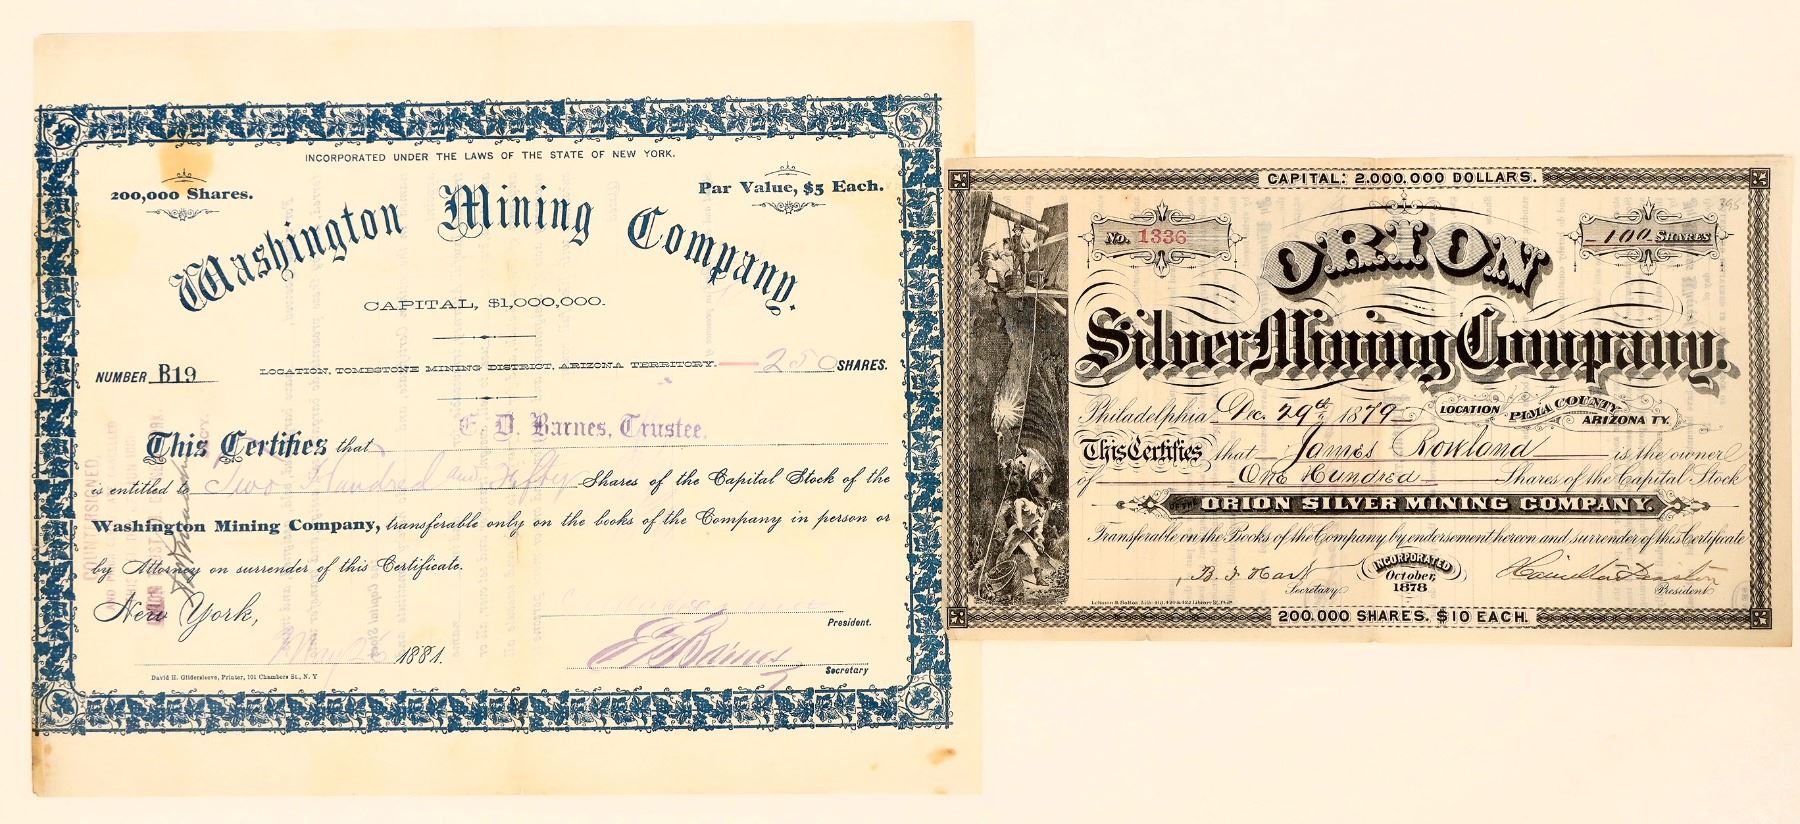 INCORPORATED UNDER THE LAWS OF THE STATE OF NEW YORK.
200,000 Shares.
Par Value, $5 Each.
Washington Mining Company.
CAPITAL, $1,000,000.
NUMBER B19
LOCATION, TOMBSTONE MINING DISTRICT, ARIZONA TERRITORY.
250 SHARES.
This Certifies that E. D. Barnes, Trustee.
is entitled to Two Hundred and Fifty Shares of the Capital Stock of the
Washington Mining Company, transferable only on the books of the Company in person or
by Attorney on surrender of this Certificate.
New York,
President.
May 1881.
Secretary
David H. Gildersleeve, Printer, 101 Chambers St., N. Y
COUNTERSIGNED
CAPITAL: 2.000.000 DOLLARS.
395
No. 1336
100 SHARES
ORION
Silver Mining Company.
Philadelphia Dec. 29th 1879
LOCATION PIMA COUNTY ARIZONA TY.
This Certifies that James Rowland is the owner
of One Hundred Shares of the Capital Stock
OF THE ORION SILVER MINING COMPANY.
Transferable on the Books of the Company by endorsement hereon and surrender of this Certificate
INCORPORATED
October,
1878
B. F. Hart
Secretary
Hamilton Disston
President
200.000 SHARES. $10 EACH.